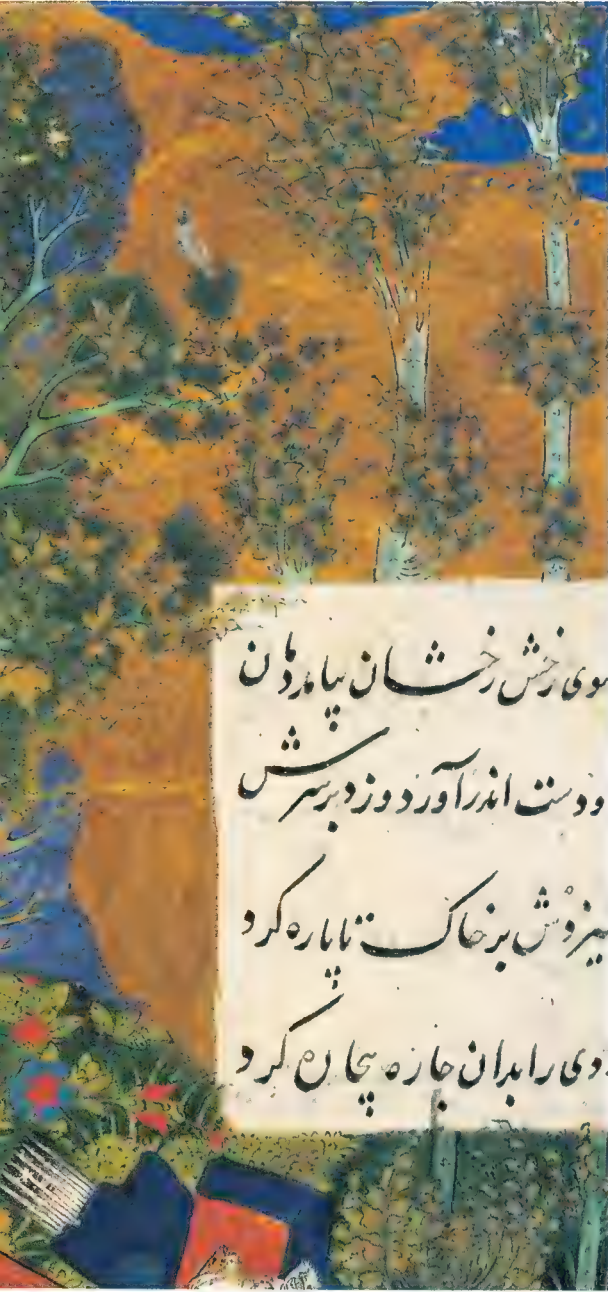 سوی رخش رخشان بیامد دمان
دو دست اندرآورد و زد برسرش
همیزدش بر خاک تا پاره کرد
ددی را بدان چاره بیچاره کرد